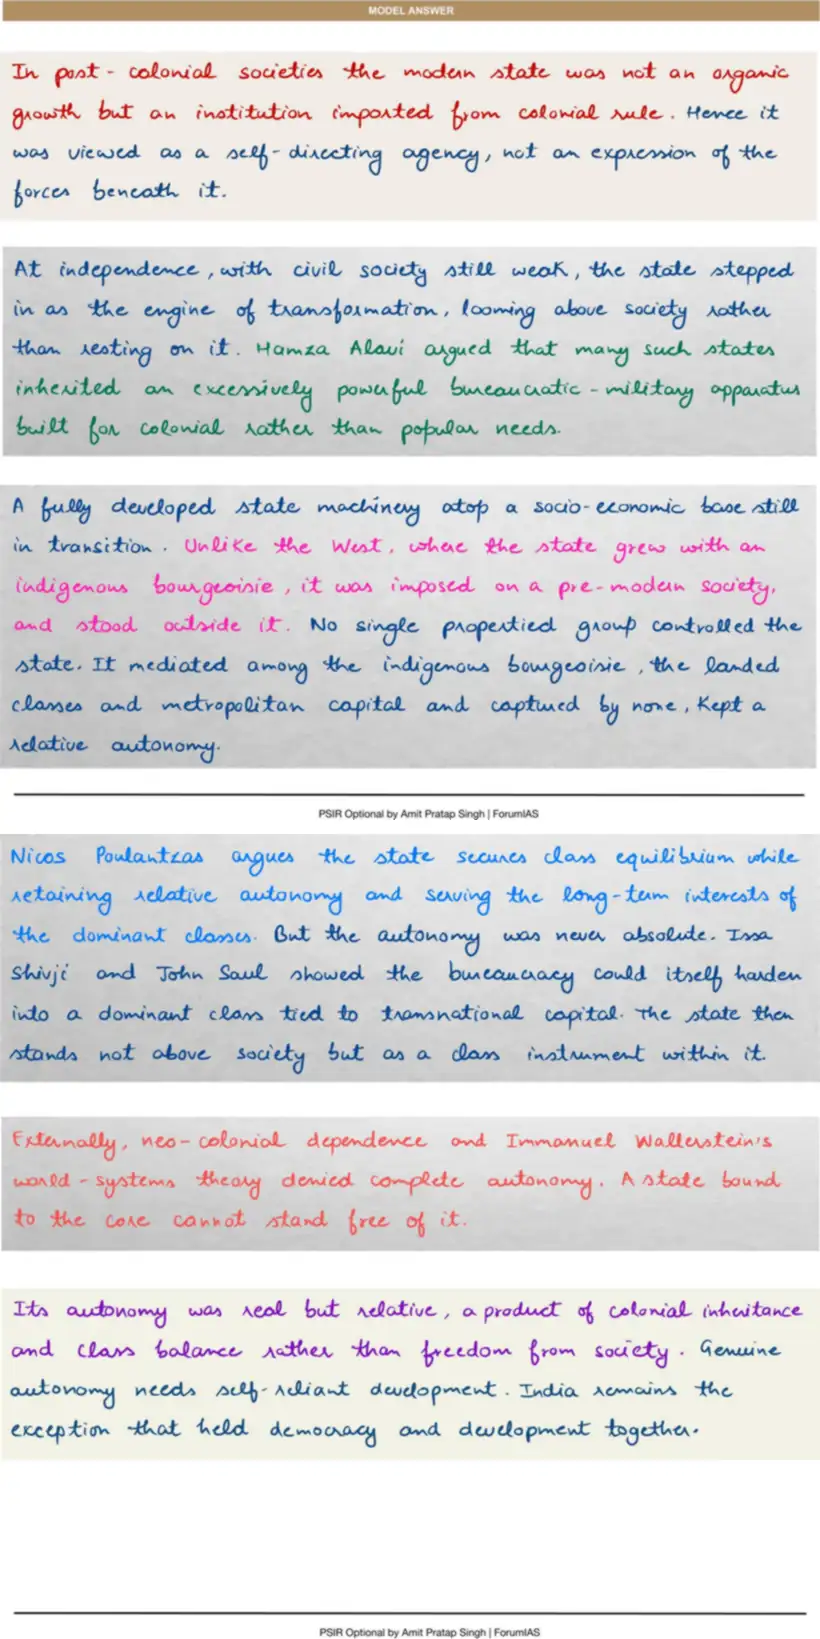 MODEL ANSWER
In post - colonial societies the modern state was not an organic
growth but an institution imported from colonial rule. Hence it
was viewed as a self-directing agency, not an expression of the
forces beneath it.
At independence, with civil society still weak, the state stepped
in as the engine of transformation, looming above society rather
than resting on it. Hamza Alavi argued that many such states
inherited an excessively powerful bureaucratic-military apparatus
built for colonial rather than popular needs.
A fully developed state machinery atop a socio-economic base still
in transition. Unlike the West, where the state grew with an
indigenous bourgeoisie, it was imposed on a pre-modern society,
and stood outside it. No single propertied group controlled the
state. It mediated among the indigenous bourgeoisie, the landed
classes and metropolitan capital and captured by none, Kept a
relative autonomy.
PSIR Optional by Amit Pratap Singh | ForumIAS
Nicos Poulantzas argues the state secures class equilibrium while
retaining relative autonomy and serving the long-term interests of
the dominant classes. But the autonomy was never absolute. Issa
Shivji and John Saul showed the bureaucracy could itself harden
into a dominant class tied to transnational capital. The state then
stands not above society but as a class instrument within it.
Externally, neo-colonial dependence and Immanuel Wallerstein's
world-systems theory denied complete autonomy. A state bound
to the core cannot stand free of it.
Its autonomy was real but relative, a product of colonial inheritance
and class balance rather than freedom from society. Genuine
autonomy needs self-reliant development. India remains the
exception that held democracy and development together.
PSIR Optional by Amit Pratap Singh | ForumIAS